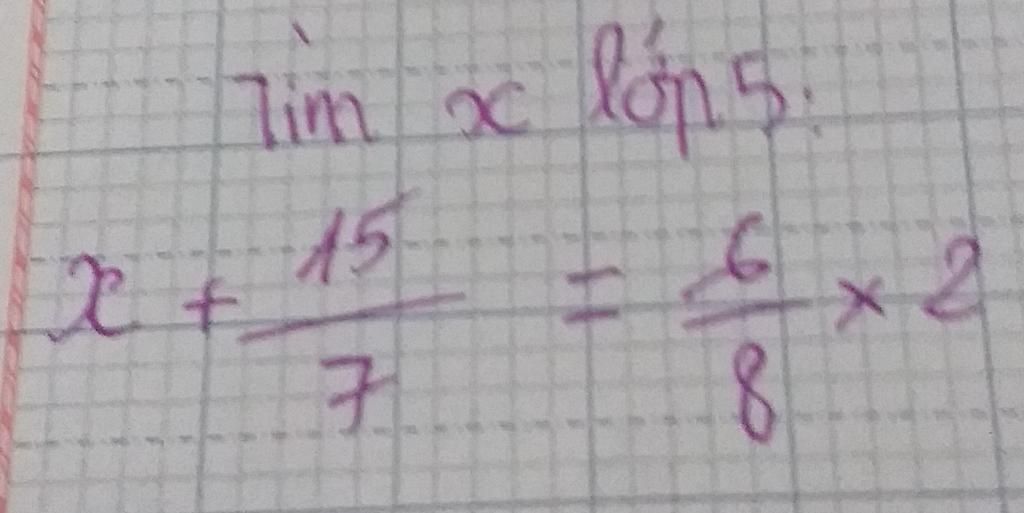 Tìm x lớp 5:
x + 15/7 = 6/8 × 2